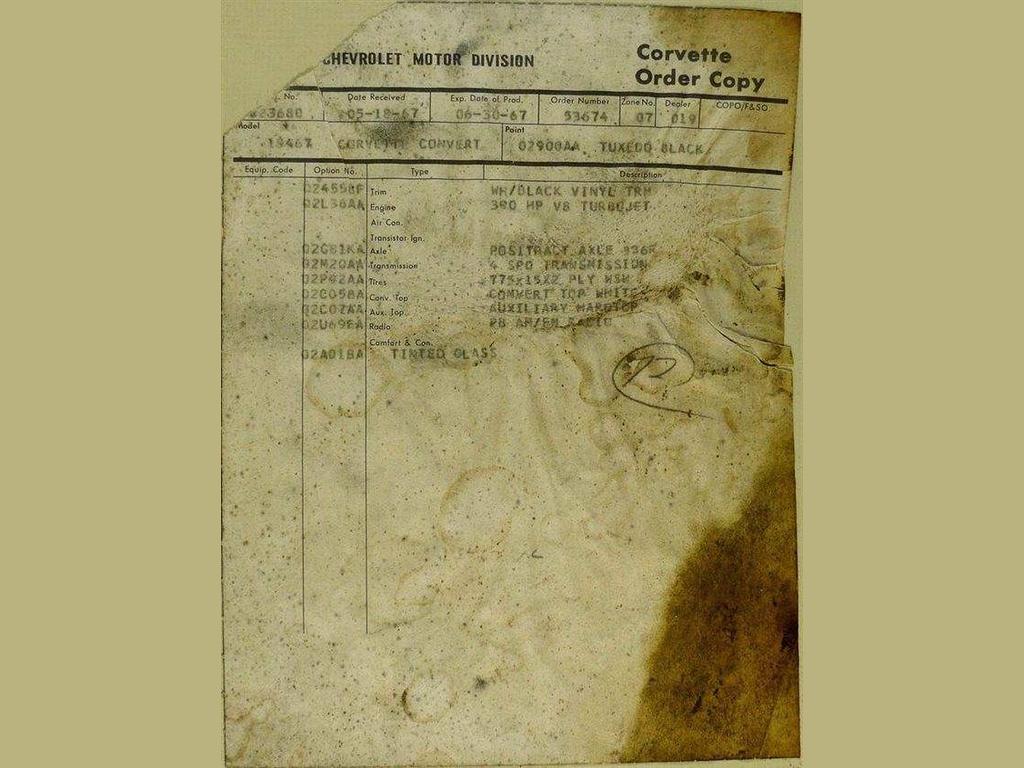 CHEVROLET MOTOR DIVISION
Corvette
Order Copy
No. Date Received Exp. Date of Prod. Order Number Zone No. Dealer COPO/F&SO
23680 05-18-67 06-30-67 53674 07 019
Model Paint
19467 CORVETTE CONVERT 02900AA TUXEDO BLACK
Equip. Code Option No. Type Description
Trim WH/BLACK VINYL TRM
02L36AA Engine 390 HP V8 TURBOJET
Air Con.
Transistor Ign.
02G81KA Axle POSITRACT AXLE 336R
02M20AA Transmission 4 SPD TRANSMISSION
02P42AA Tires 775x15X2 PLY WSW
02C05BA Conv. Top CONVERT TOP WHITE
02C07AA Aux. Top AUXILIARY HARDTOP
02U69EA Radio PB AM/FM RADIO
Comfort & Con.
02A01BA TINTED GLASS